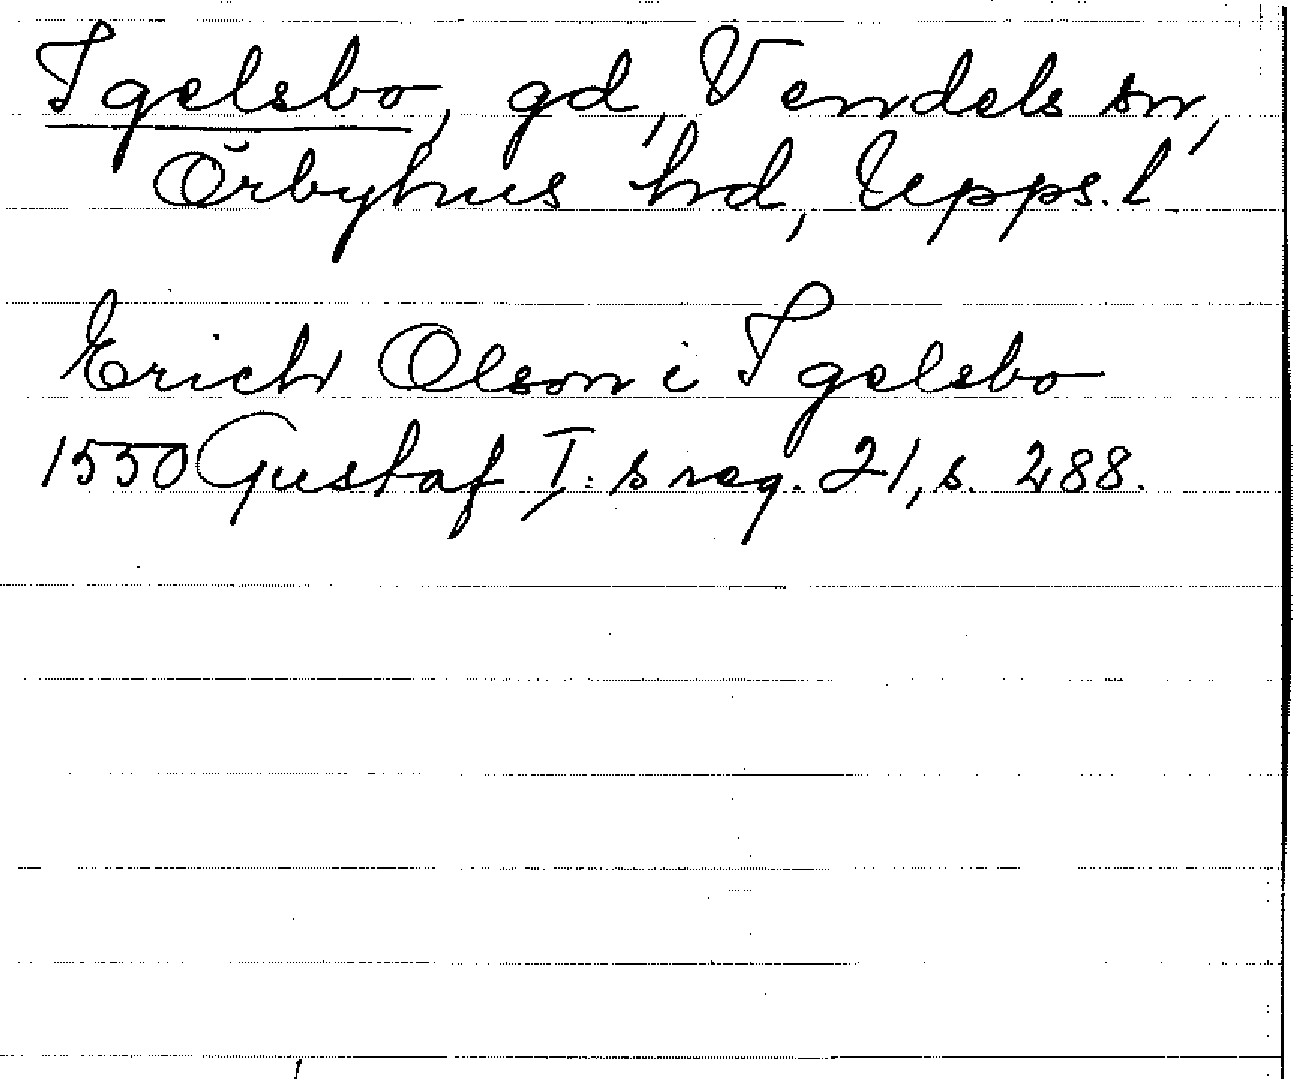 Igelsbo, gd, Vendels sn,
Örbyhus hd, Upps. l
Erich Olson i Igelsbo
1550 Gustaf I:s reg. 21, s. 288.